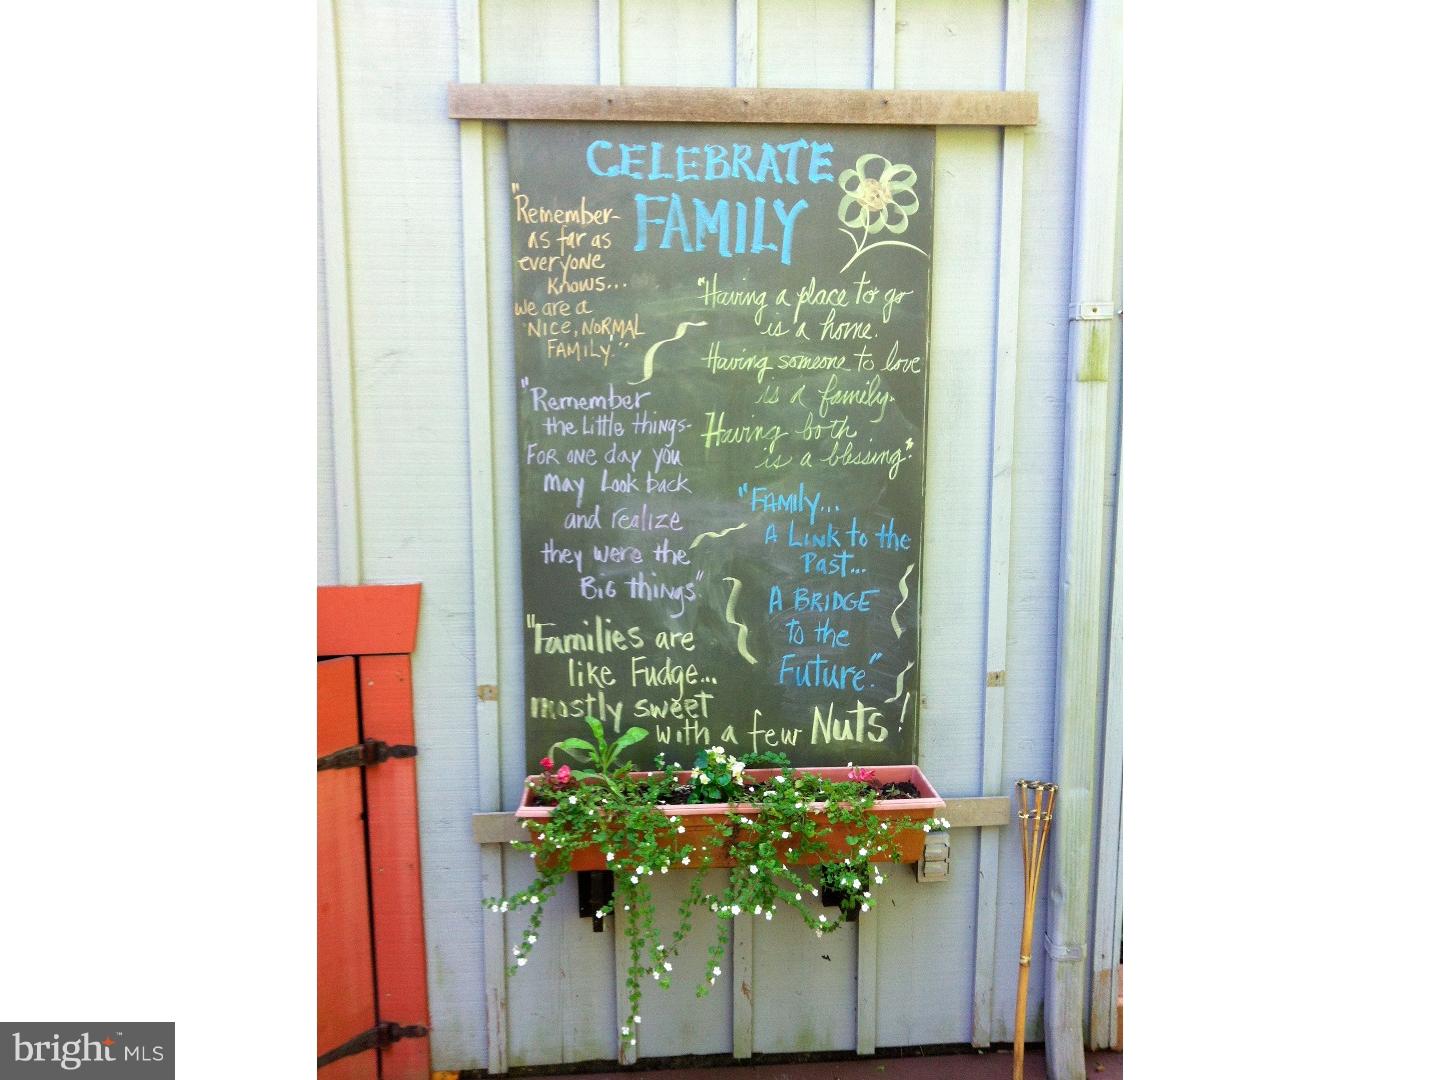 CELEBRATE
FAMILY
"Remember-
as far as
everyone
knows...
we are a
NICE, NORMAL
FAMILY."
"Having a place to go
is a home.
Having someone to love
is a family.
Having both
is a blessing."
"Remember
the Little things-
For one day you
may Look back
and realize
they were the
Big things."
"Family...
A Link to the
Past...
A BRIDGE
to the
Future."
"Families are
like Fudge...
mostly sweet
with a few Nuts!
bright™ MLS